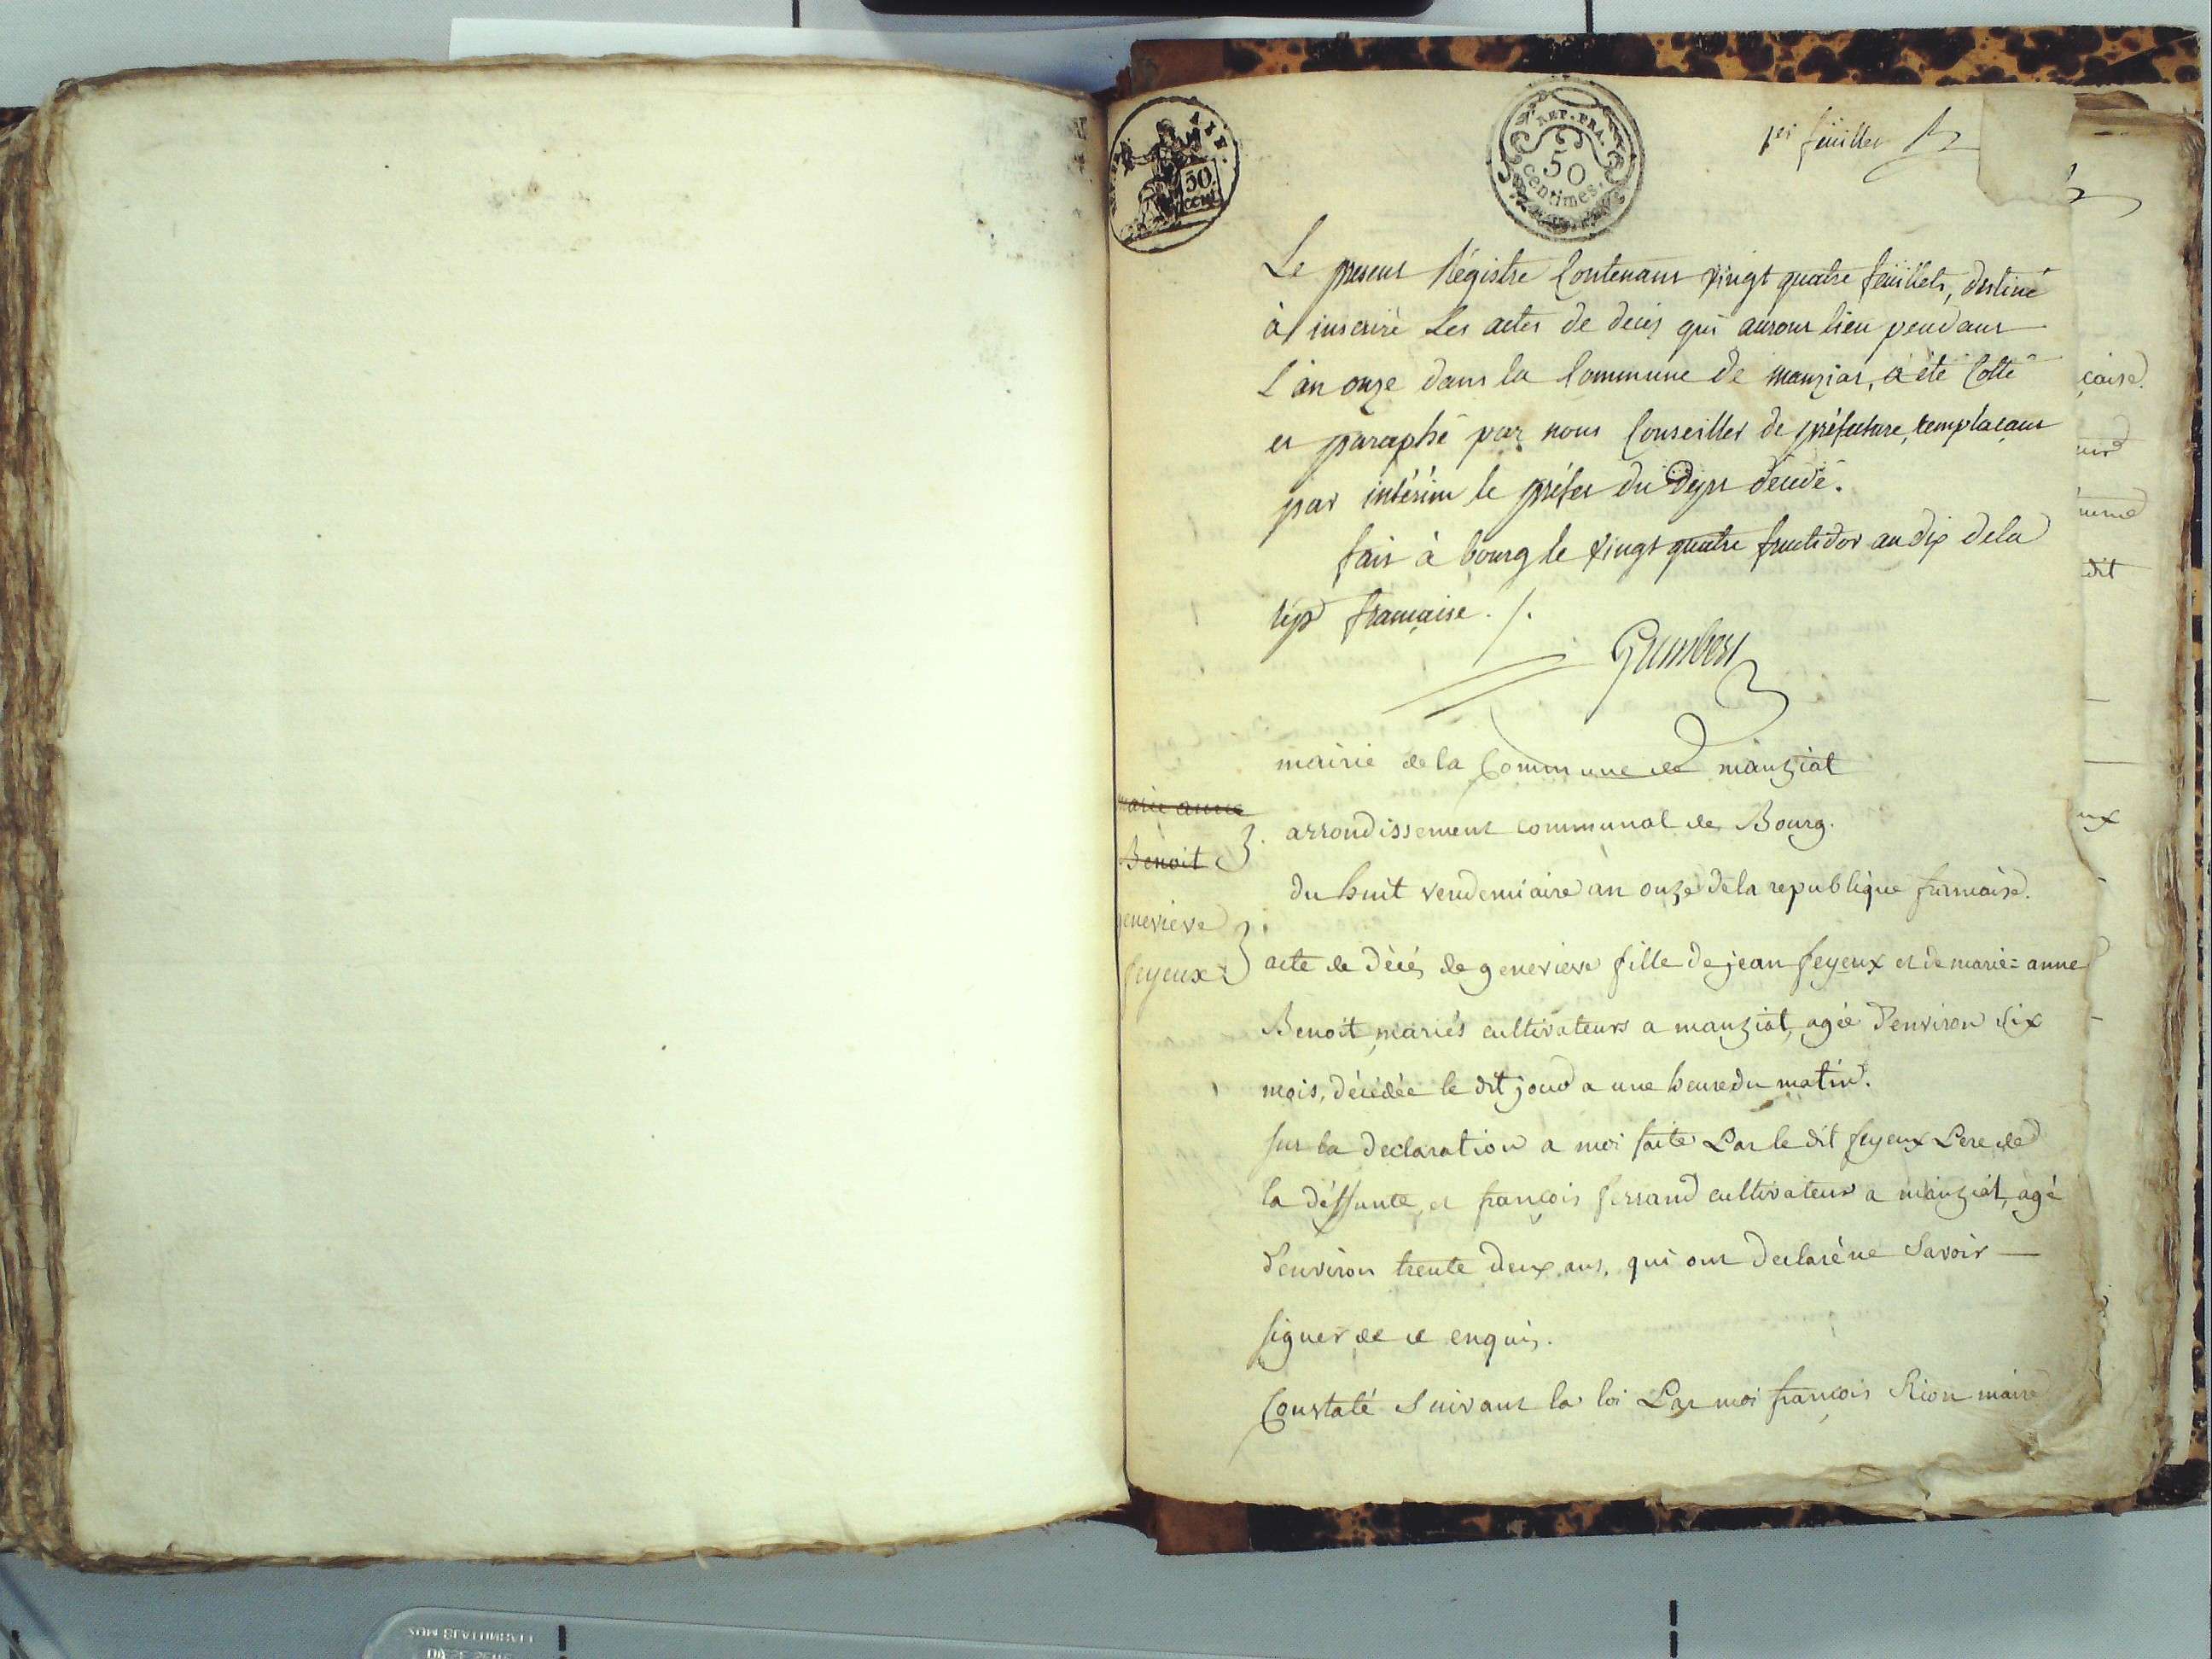 REP. FRA.
50
centimes.
50
cent.
1er feuillet
Le present Régistre Contenant vingt quatre feuillets, destiné
à inscrire les actes de décés qui auront lieu pendant
L'an onze dans la Commune de manziat, a été Cotté
et paraphé par nous Conseiller de préfecture, remplaçant
par intérim le préfet du dept de
fait à bourg le vingt quatre fructidor an dix de la
rép française ./.
mairie de la Commune de manziat
marie anne
Benoit
arrondissement communal de Bourg.
du huit vendemiaire an onze de la republique francaise.
genevieve
feyeux
acte de décés de genevieve fille de jean feyeux et de marie=anne
Benoit, mariés cultivateurs a manziat, agée d'environ six
mois, décédée le dit jour a une heure du matin.
sur la declaration a moi faite Par le dit feyeux Pere de
la déffunte, et françois ferrand cultivateur a manziat, agé
d'environ trente deux ans, qui ont declaré ne Savoir
signer de ce enquis.
Constaté Suivant la loi Par moi françois Rion maire
çaise
dit
ux